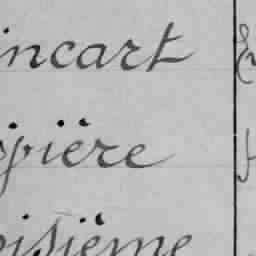 incart
pière
oisième